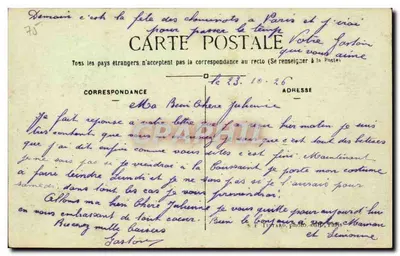 Demain c'est la fete des chommots a Paris et j'irai
pour passer le temps
Votre Gaston
qui vous aime
CARTE POSTALE
Tous les pays étrangers n'acceptent pas la correspondance au recto (Se renseigner à la Poste)
le 23-10-26
CORRESPONDANCE
ADRESSE
Ma Bien Chere Julienne
Je fait reponse a votre lettre que hier matin je suis
tres contente que c'est tout des betises
que j'ai dit enfin comme vous dites c'est fini. Maintenant
je ne sais pas si je viendrai a la Toussaint, je porte mon costume
a faire teindre lundi et je ne sais pas si je l'aurais pour
samedi dans tout les cas je vous previendrai
Allons ma bien Chere Julienne je vous quitte pour aujourd'hui
en vous embrassant de tout coeur. Bien le bonjour a votre Maman
Recevez mille baisers
et Simonne
Gaston